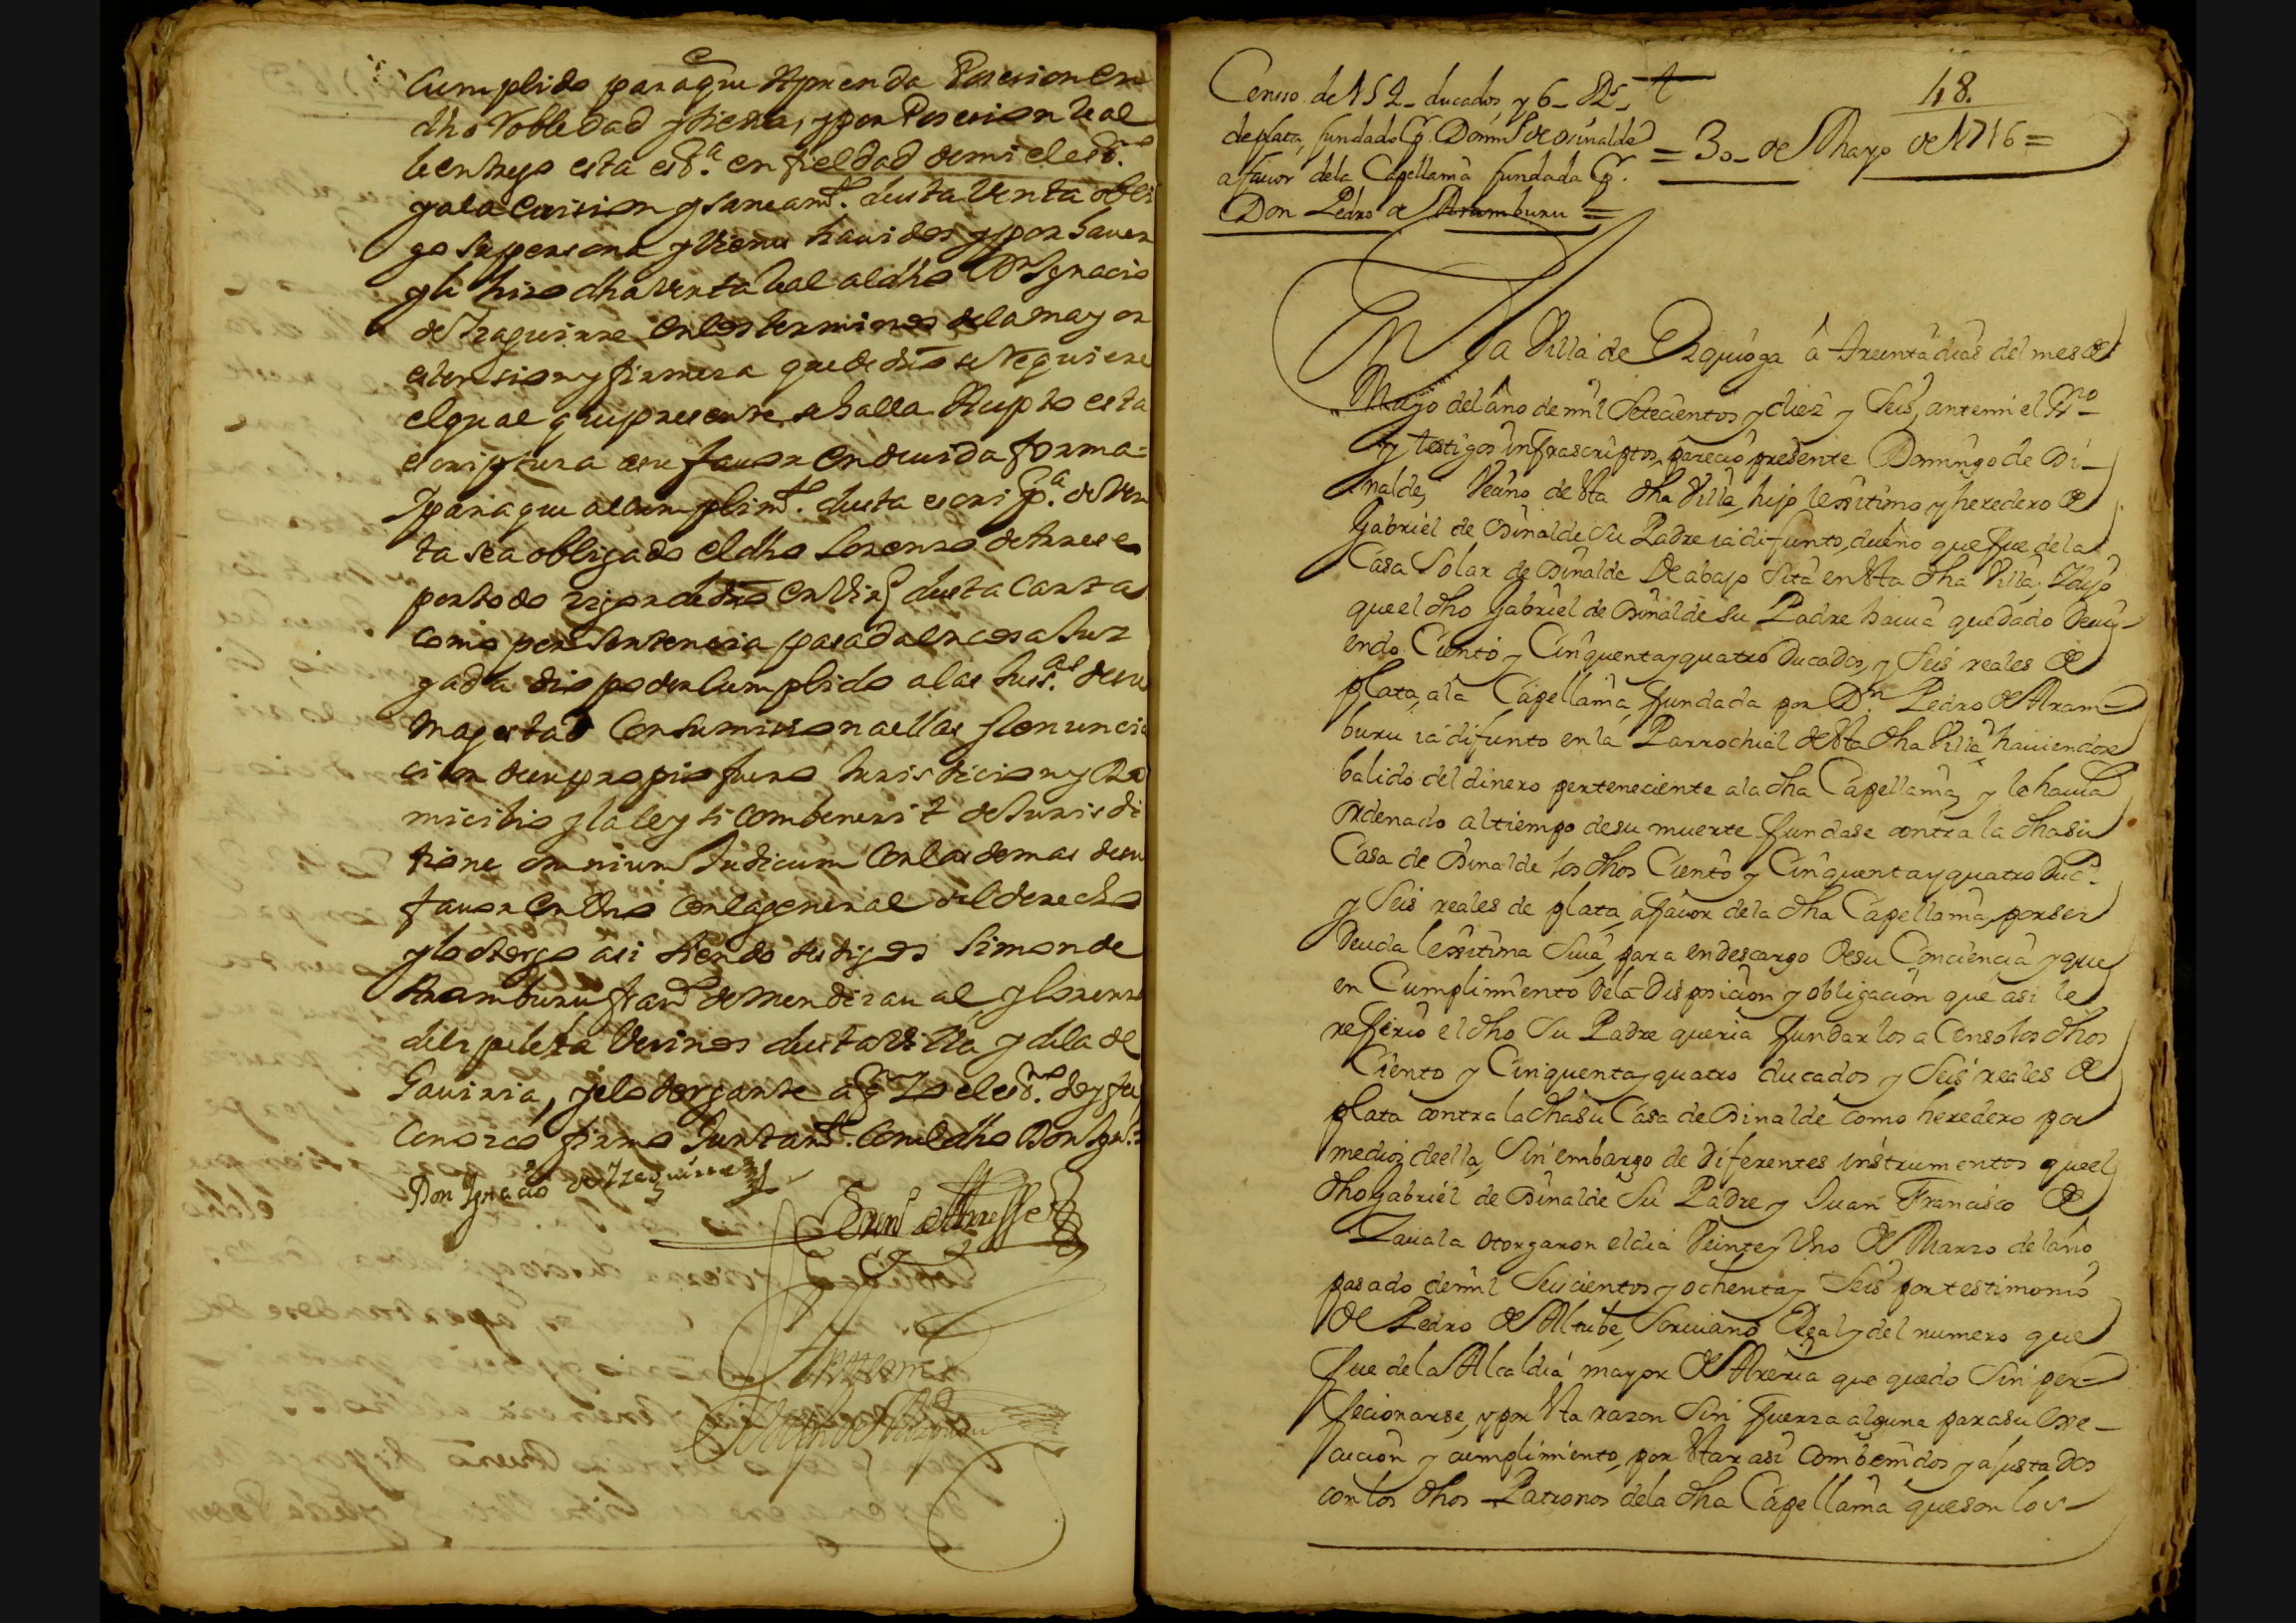 Cumplido paraque Aprenda Posesion en
dho Robledad y tierra, y por Posesion Real
le entrego esta essra. en fieldad de mi el essno.
y a la eviccion y saneamto. desta Venta obli
go su persona y Vienes havidos y por haver
y le hizo dha Venta Real al dho Dn Ygnacio
de Yzaguirre en los terminos de la mayor
estension y firmeza que de dro se Requiere
el qual que presente se halla Acepto esta
escriptura en su favor en devida forma =
Y para que al cumplimto. desta escripa. de Ven
ta sea obligado el dho Lorenzo de Arrese
por todo rigor de dro en Vird desta Carta
como por Sentencia pasada en cosa Juz
gada dio poder Cumplido a las Jusas. de su
Magestad Con sumision a ellas Renuncia
cion de su propio fuero Jurisdicion y Do
micilio y la ley si combenerit de Jurisdi
tione omnium Judicum Con las demas de su
favor en Uno Con la general del derecho
y lo otorgo asi siendo testigos Simon de
Aramburu, Franco de Mendizaval, y Lorenzo
de Vezinos desta Villa y de la de
Gaviria, y el otorgante a q Yo el esno. doy fee
Conozco firmo Juntamte. Con el dho Don Ygno.
Don Ygnacio de Yzaguirre
Lorenzo de Arresse
Ante mi
Censo de 152_ ducados y 6_ Rs.
de plata, fundado Pr. Domingo de Osinalde
a favor de la Capellania fundada Pr.
Don Pedro de Aramburu =
18.
= 30_ de Mayo de 1716 =
En La Villa de Ezquioga â treinta dias del mes de
Mayo del año de mil Setecientos y diez y Seis, ante mi el Esno
y testigos infrascriptos, parecio presente Domingo de Osi_
nalde, Vecino de Sta dha Villa, hijo lexitimo y heredero de
Gabriel de Osinalde su Padre ia difunto, dueño que fue de la
Casa Solar de Osinalde de abajo Sita en Sta dha Villa, Y dijo
que el dho Gabriel de Osinalde su Padre havia quedado devi_
endo Ciento y Cinquenta y quatro Ducados, y Seis reales de
plata, a la Capellania fundada por Dn. Pedro de Aram_
buru ia difunto en la Parrochial de Sta dha Villa haviendose
balido del dinero perteneciente a la dha Capellania, y le havia
Ordenado al tiempo de su muerte fundase contra la dha su
Casa de Osinalde los dhos Ciento y Cinquenta y quatro Ducs.
y Seis reales de plata, a favor de la dha Capellania, por ser
Deuda lexitima Suia, para en descargo de su Conciencia y que
en Cumplimiento de la Disposicion y obligacion que asi le
refirio el dho Su Padre queria fundar los a Censo los dhos
Ciento y Cinquenta y quatro ducados y Seis reales de
plata contra la dha su Casa de Osinalde como heredero por
medio, de ella, Sin embargo de diferentes instrumentos que el
dho Gabriel de Osinalde Su Padre y Juan Francisco de
Zavala otorgaron el dia Veinte y Uno de Marzo del año
pasado de mil Seicientos y ochenta y Seis por testimonio
de Pedro de Altube, Escrivano Real y del numero que
fue de la Alcaldia mayor de Areria que quedo Sin per_
fecionarse, y por Sta razon Sin fuerza alguna para su Exe_
cucion y cumplimiento, por Star asi Combenidos y ajustados
con los dhos Patronos de la dha Capellania que son los_